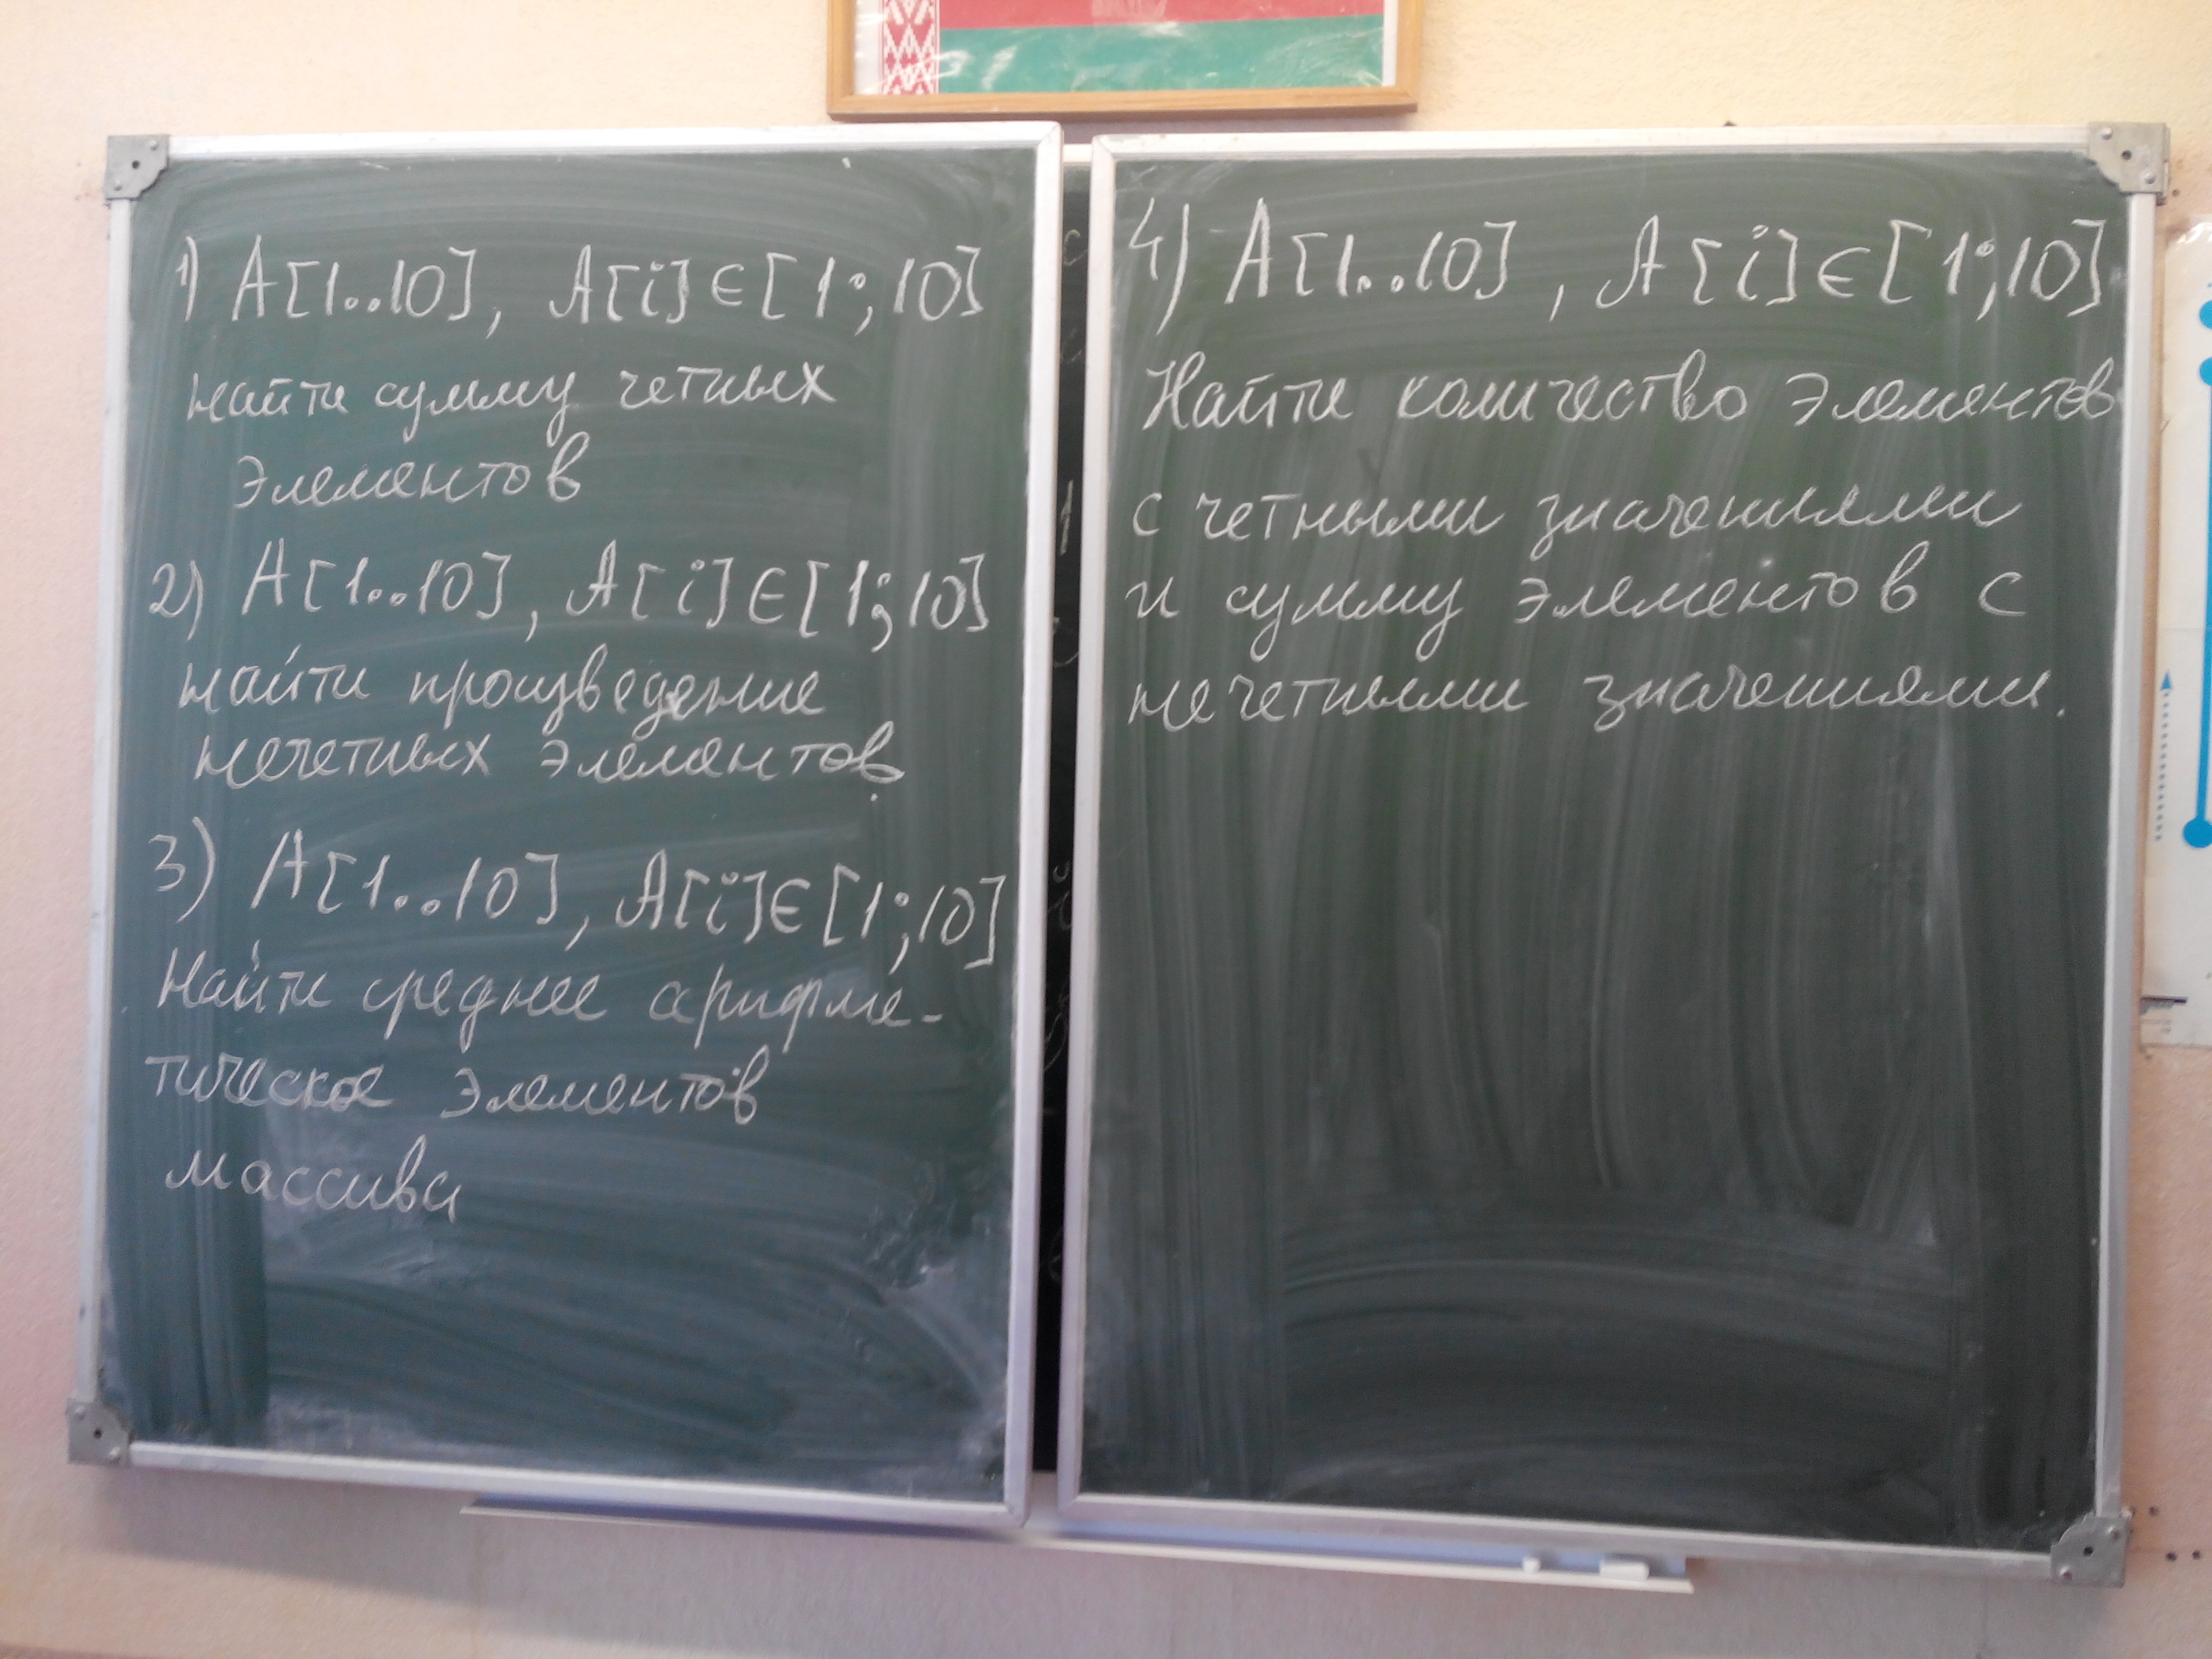 1) A[1..10], A[i]∈[1;10]
найти сумму четных
элементов
2) A[1..10], A[i]∈[1;10]
найти произведение
нечетных элементов.
3) A[1..10], A[i]∈[1;10]
Найти среднее арифме-
тическое элементов
массива
4) A[1..10], A[i]∈[1;10]
Найти количество элементов
с четными значениями
и сумму элементов с
нечетными значениями.